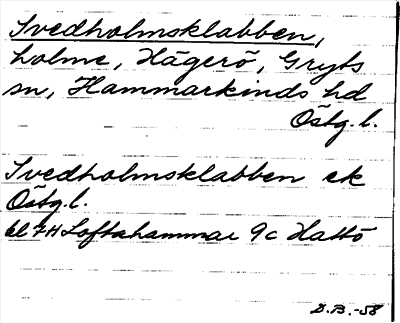 Svedholmsklabben,
holme, Hägerö, Gryts
sn, Hammarkinds hd
Östg.l.
Svedholmsklabben ek
Östg.l.
bl 7H Loftahammar 9c Hattö
D.B.-58